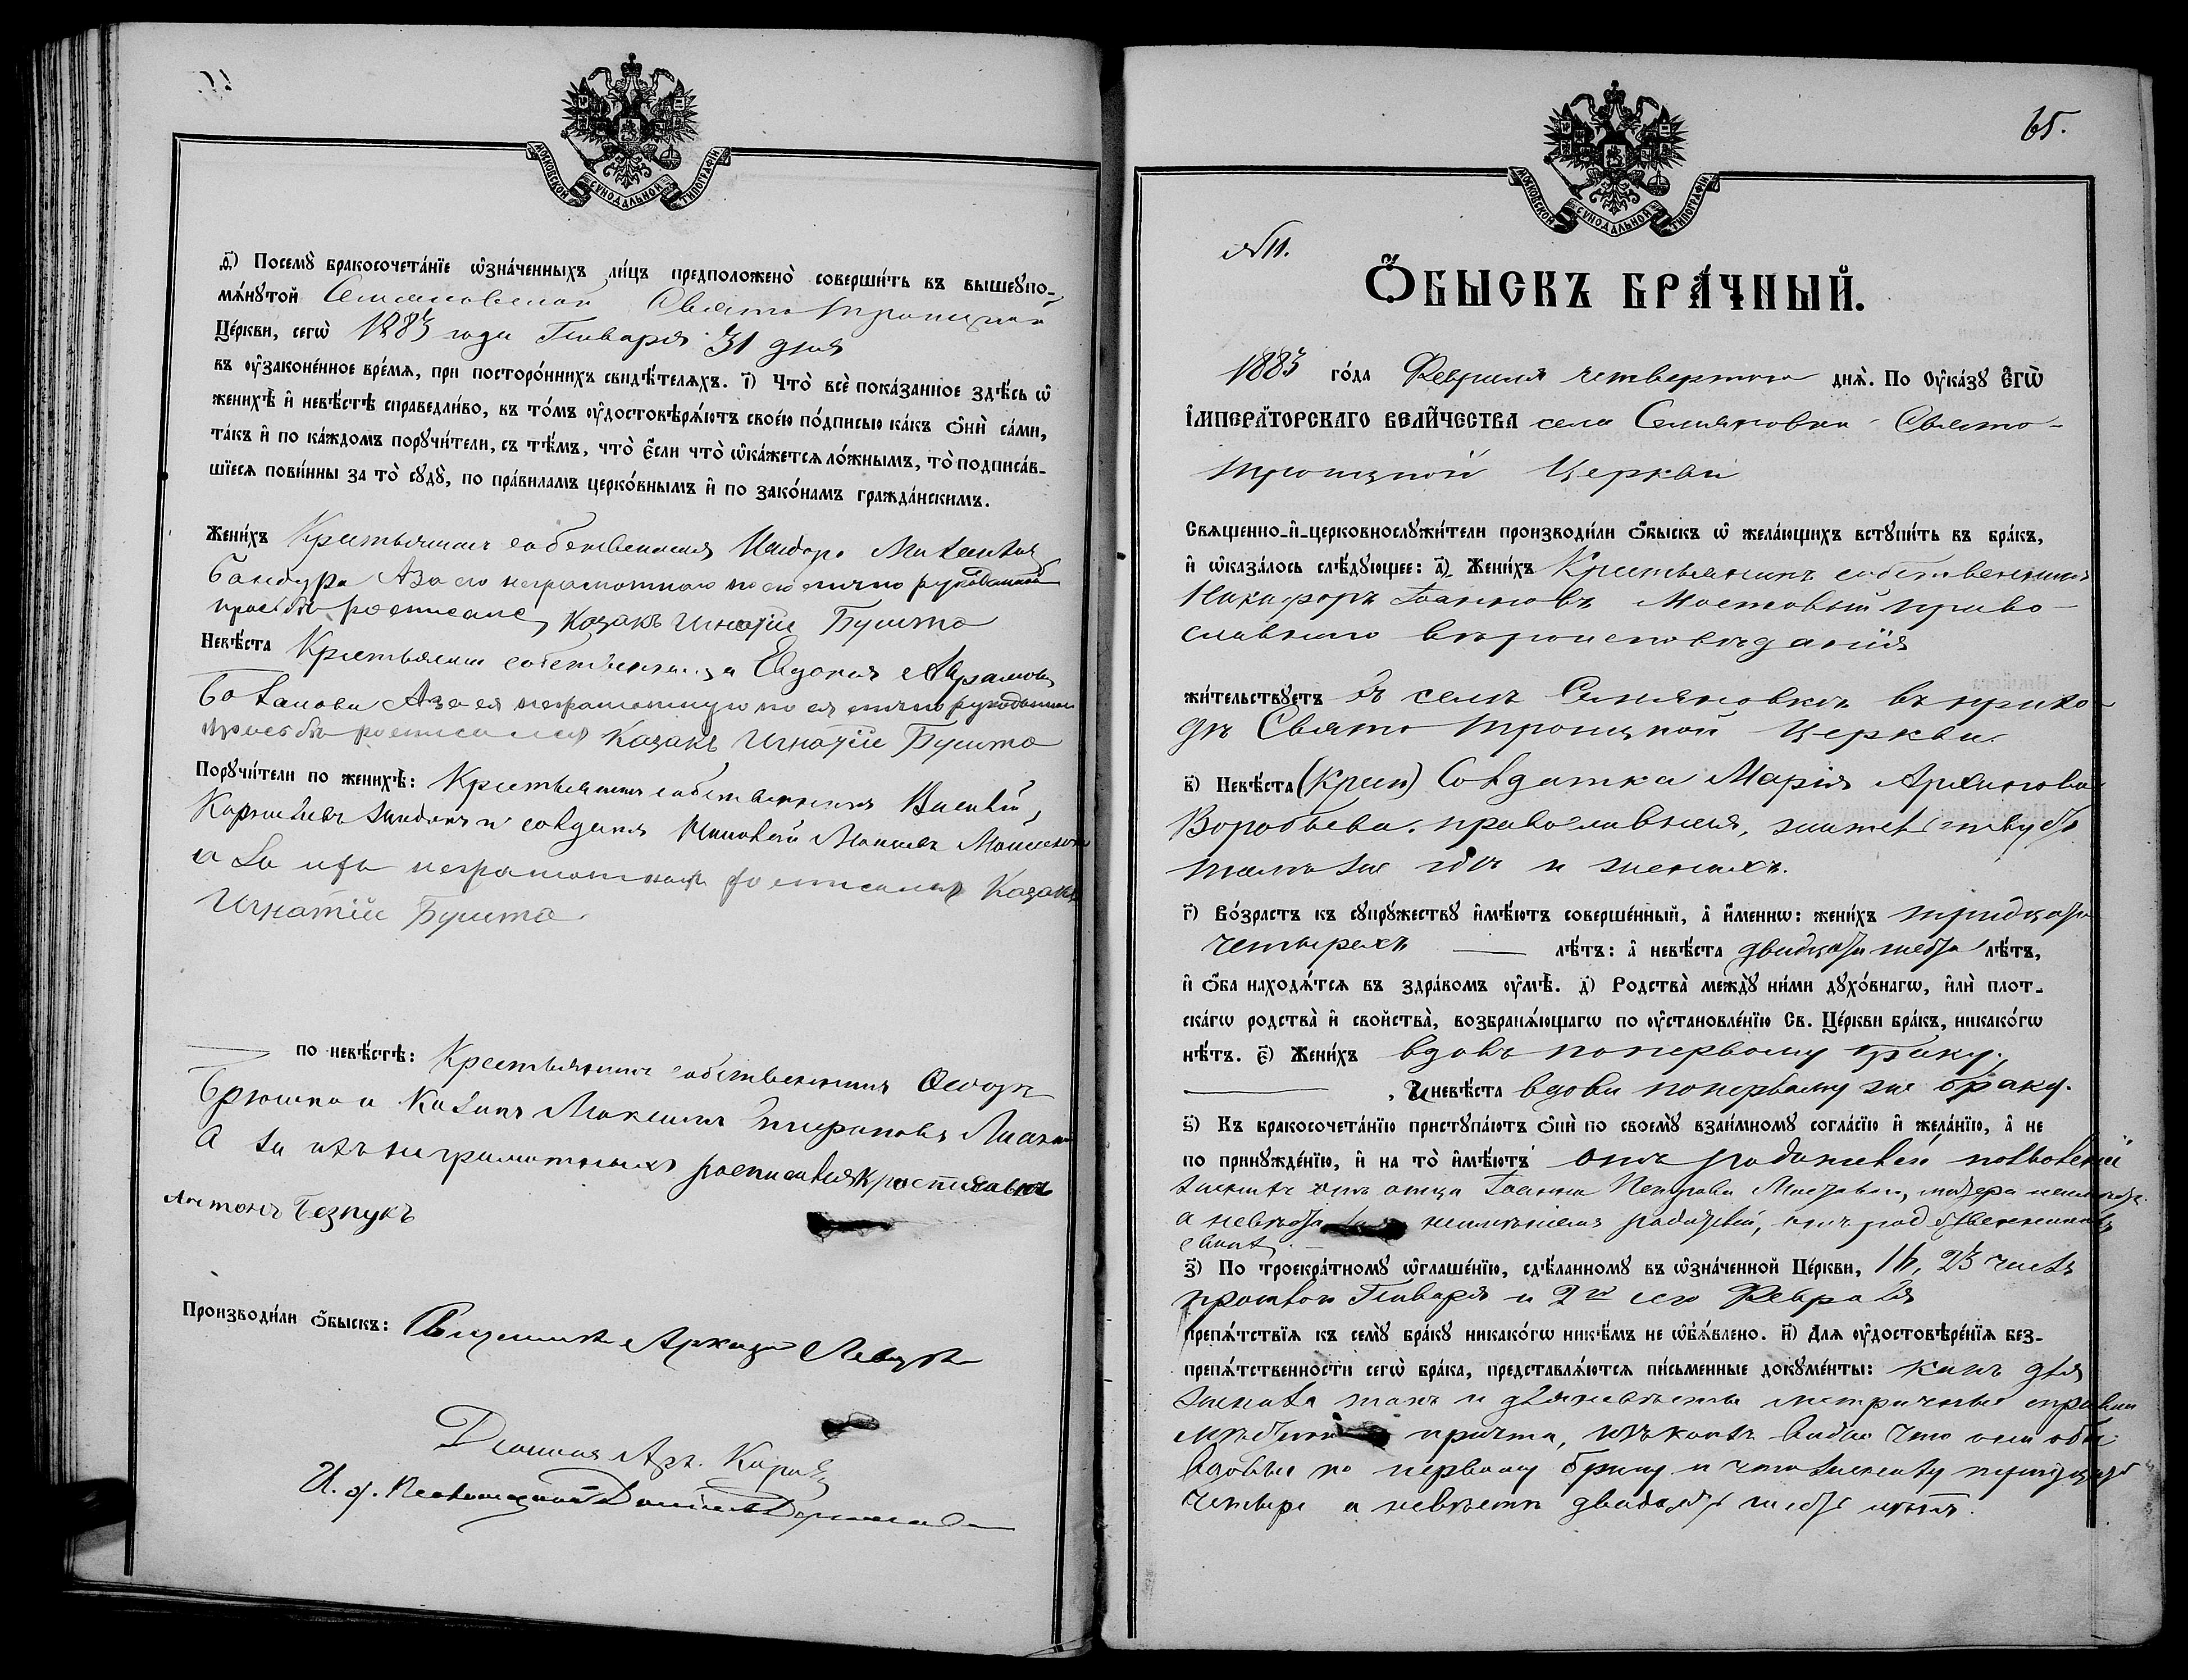 МОСКОВСКОЙ СѴНОДАЛЬНОЙ ТИПОГРАФІИ
д҃) Посемꙋ̀ бракосочета́нїе ѡ҆зна́ченныхъ ли́цъ предположено̀ соверши́ть въ вышеꙋпо-
мѧ́нꙋтой Семяновской Свято Троицкой
Це́ркви, сегѡ̀ 1883 года Января 31 дня
въ ᲂу҆законе́нное вре́мѧ, при посторо́ннихъ свидѣ́телѧхъ. і҃) Что̀ всѐ пока́занное здѣ́сь ѡ҆
женихѣ̀ и҆ невѣ́стѣ справедли́во, въ то́мъ ᲂу҆достовѣрѧ́ютъ свое́ю по́дписью ка́къ ѻ҆нѝ са́ми,
та́къ и҆ по ка́ждомъ порꙋчи́тели, съ тѣ́мъ, что̀ є҆́сли что̀ ѡ҆ка́жетсѧ ло́жнымъ, то̀ подписа́в-
шїесѧ пови́нны за то̀ сꙋдꙋ̀, по пра́виламъ церко́внымъ и҆ по зако́намъ гражда́нскимъ.
Жени́хъ Крестьянинъ собственникъ Исидоръ
Бандура А за его неграмотного по его лично рукоданной
просьбѣ росписался Козакъ Игнатій Бушта
Невѣ́ста Крестьянка собственница Евдокія Аврамова
А за ея неграмотную по ея лично рукоданной
просьбѣ росписался Казакъ Игнатій Бушта
Порꙋчи́тели по женихѣ̀: Крестьянинъ собственникъ Василій
Корнильевъ и солдатъ
а за ихъ неграмотныхъ росписался Казакъ
Игнатій Бушта
по невѣ́стѣ: Крестьянинъ собственникъ Ѳеодоръ
Брюшко и Казакъ Максимъ
а за ихъ неграмотныхъ росписался Крестьянинъ
Антонъ Безрукъ
Производи́ли ѻ҆́быскъ: Священникъ Аркадій Левицкій
И. д. Псаломщика
65.
МОСКОВСКОЙ СѴНОДАЛЬНОЙ ТИПОГРАФІИ
№ 11.
Ѻ҆́БЫСКЪ БРА́ЧНЫЙ.
1883 го́да Февраля четвертого днѧ̀. По Оу҆ка́зꙋ Є҆гѡ̀
І҆МПЕРА́ТОРСКАГО ВЕЛИ́ЧЕСТВА села Семяновки Свято-
Троицкой Церкви
Свѧщенно-и҆-церковнослꙋжи́тели производи́ли ѻ҆́быскъ ѡ҆ жела́ющихъ встꙋпи́ть въ бра́къ,
и҆ ѡ҆каза́лось слѣ́дꙋющее: а҃) Жени́хъ Крестьянинъ собственникъ
Никифоръ Іоанновъ Мостовый право-
славного вѣроисповѣданія
жи́тельствꙋетъ въ селѣ Семяновкѣ въ прихо-
дѣ Свято Троицкой Церкви.
в҃) Невѣ́ста (Крест) Солдатка Марія Архипова
Воробьева. православная, жительствуетъ
тамъ же гдѣ и женихъ.
г҃) Во́зрастъ къ сꙋпрꙋ́жествꙋ и҆мѣ́ютъ соверше́нный, а҆ и҆́меннѡ: жени́хъ тридцати
четырехъ — лѣ́тъ: а҆ невѣ́ста двадцати шести лѣ́тъ,
и҆ ѻ҆́ба нахо́дѧтсѧ въ здра́вомъ ᲂу҆мѣ̀. д҃) Родства̀ междꙋ̀ ни́ми дꙋхо́внагѡ, и҆лѝ плот-
ска́гѡ родства̀ и҆ свойства̀, возбранѧ́ющагѡ по ᲂу҆становле́нїю Св. Це́ркви бра́къ, никако́гѡ
нѣ́тъ. є҃) Жени́хъ вдовъ по первому браку,
и невѣ́ста вдова по первому же браку.
ѕ҃) Къ бракосочета́нїю пристꙋпа́ютъ ѻ҆нѝ по своемꙋ̀ взаи́мномꙋ согла́сїю и҆ жела́нїю, а҆ не
по принꙋжде́нїю, и҆ на то̀ и҆мѣ́ютъ отъ родителей позволеніе
женихъ отъ отца Іоанна Петрова Мостового,
а невѣста неимѣніемъ родителей, отъ родственниковъ
своихъ.
з҃) По троекра́тномꙋ ѡ҆глаше́нїю, сдѣ́ланномꙋ въ ѡ҆зна́ченной Це́ркви, 16, 23 числъ
прошлого Января и 2го сего Февраля
препѧ́тствїѧ къ семꙋ̀ бра́кꙋ никако́гѡ никѣ́мъ не ѡ҆б̾ѧ́влено. и҃) Длѧ ᲂу҆достовѣре́нїѧ без-
препѧ́тственности сегѡ̀ бра́ка, представлѧ́ютсѧ пи́сьменные докꙋме́нты: какъ для
жениха такъ и для невѣсты метричные справки
мѣстного причта, изъ коихъ видно что они оба
вдовы по первому браку и что жениху тридцать
четыре а невѣстѣ двадцать шесть лѣтъ.